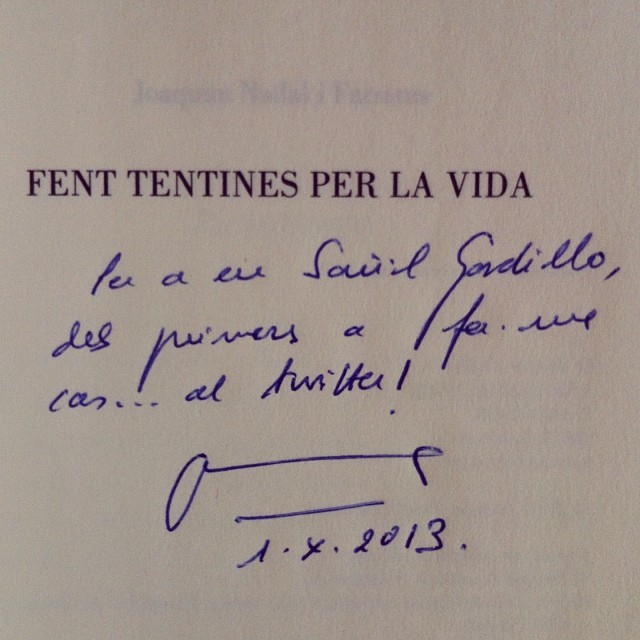 Joaquim Nadal i Farreras
FENT TENTINES PER LA VIDA
Per a en Saül Gordillo,
dels primers a fer-me
cas... al twitter!
1.X.2013.